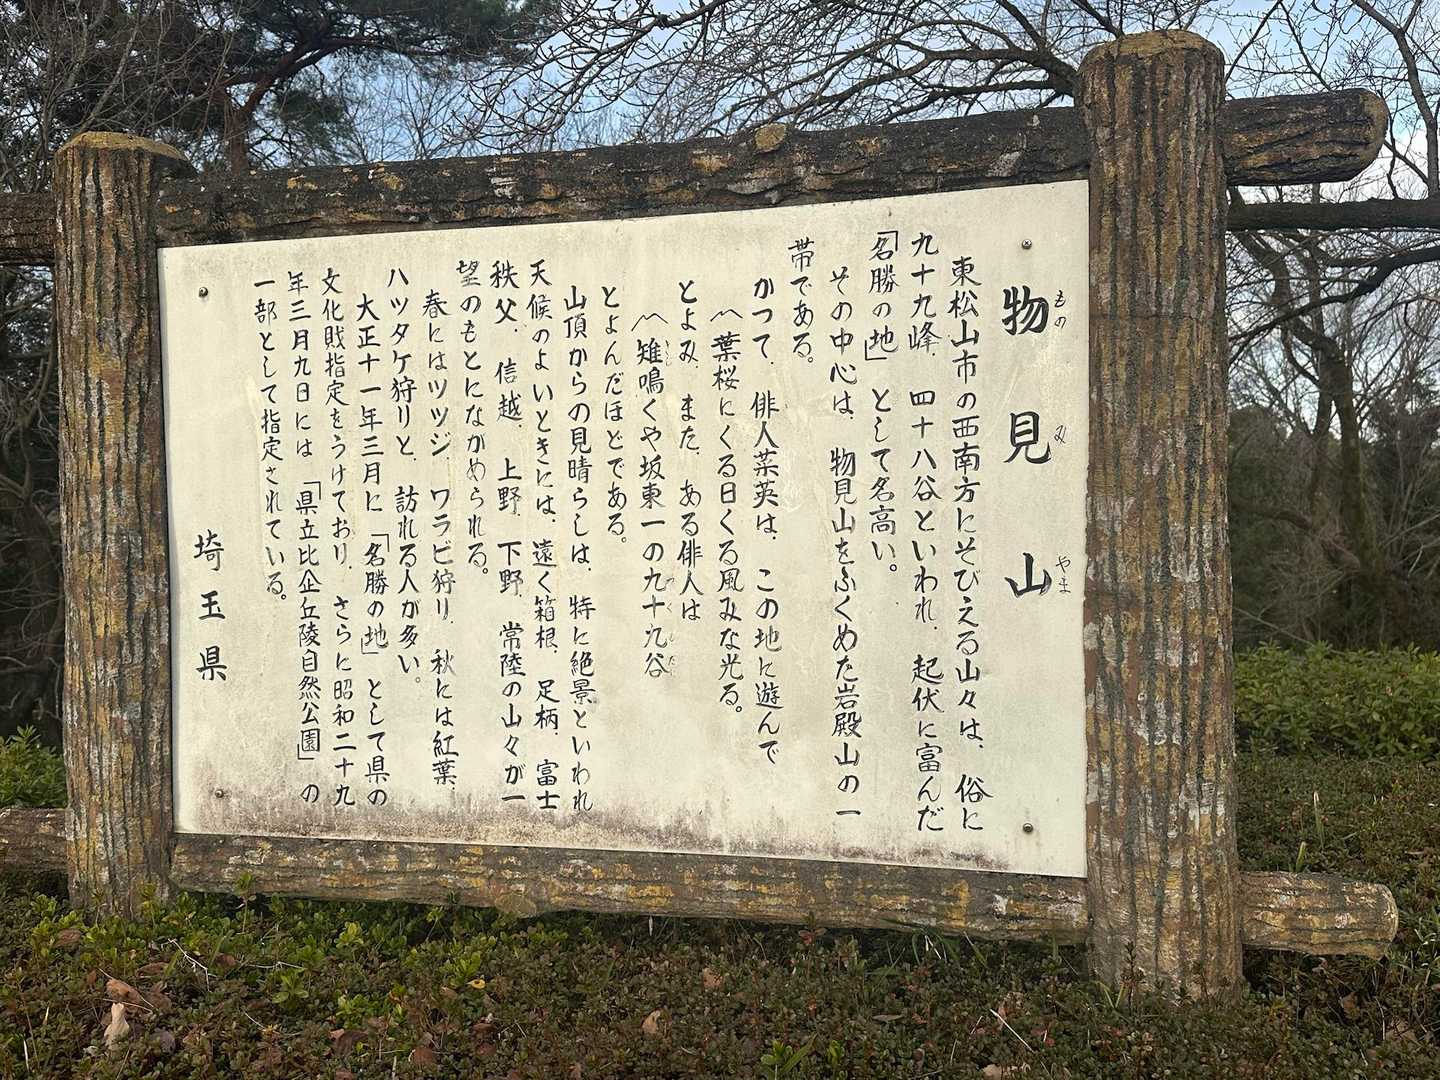 物見山
もの み やま
東松山市の西南方にそびえる山々は、俗に
九十九峰、四十八谷といわれ、起伏に富んだ
「名勝の地」として名高い。
その中心は、物見山をふくめた岩殿山の一
帯である。
かつて、俳人菜英は、この地に遊んで
〽葉桜にくる日くる風みな光る。
とよみ、また、ある俳人は
〽雉鳴くや坂東一の九十九谷
きじ つくしだに
とよんだほどである。
山頂からの見晴らしは、特に絶景といわれ
天候のよいときには、遠く箱根、足柄、富士
秩父、信越、上野、下野、常陸の山々が一
望のもとにながめられる。
春にはツツジ、ワラビ狩り、秋には紅葉、
ハツタケ狩りと、訪れる人が多い。
大正十一年三月に「名勝の地」として県の
文化財指定をうけており、さらに昭和二十九
年三月九日には「県立比企丘陵自然公園」の
一部として指定されている。
埼玉県